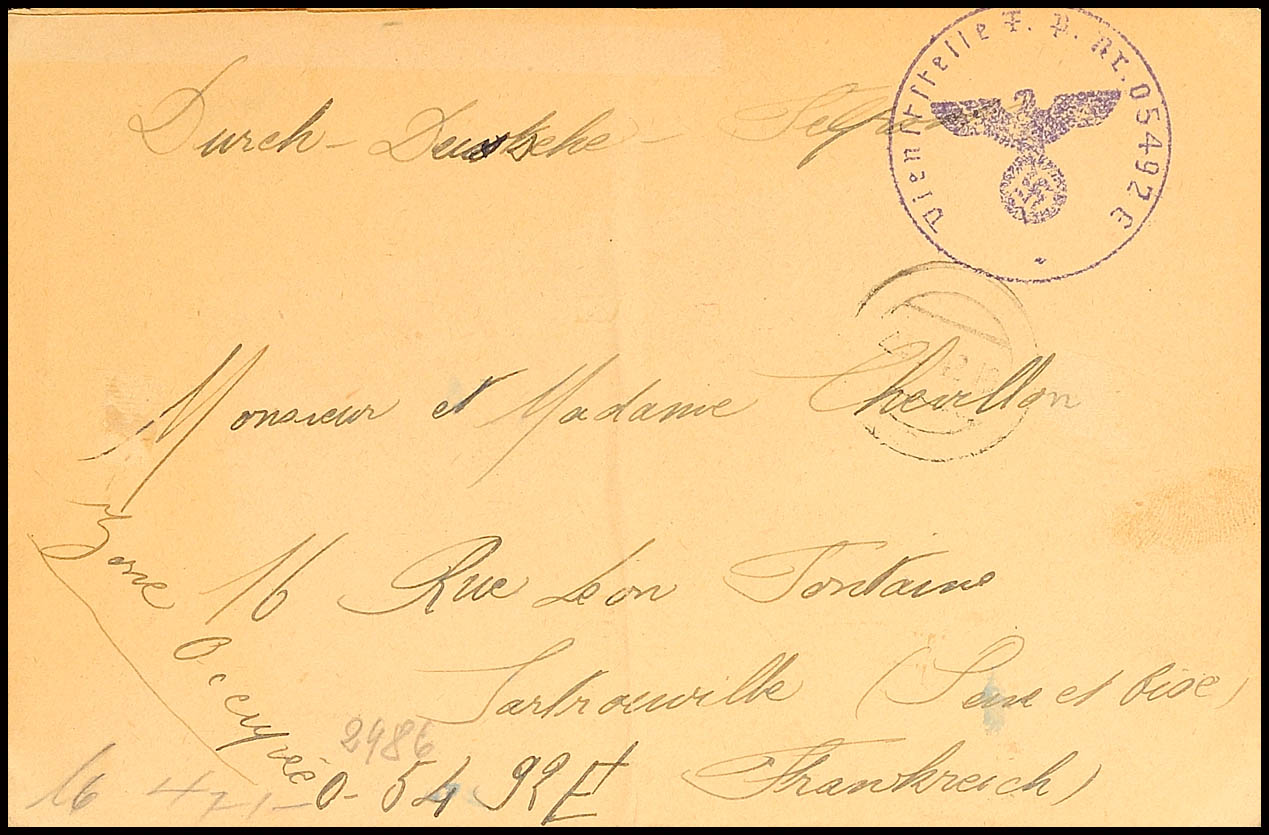 Dienststelle F. P. Nr. 05492 E
Durch - Deutsche -
Monsieur et Madame Chevillon
Zone Occupée
16 Rue Léon Fontaine
Sartrouville (Seine et Oise)
2486
0-54 92 E
Frankreich)